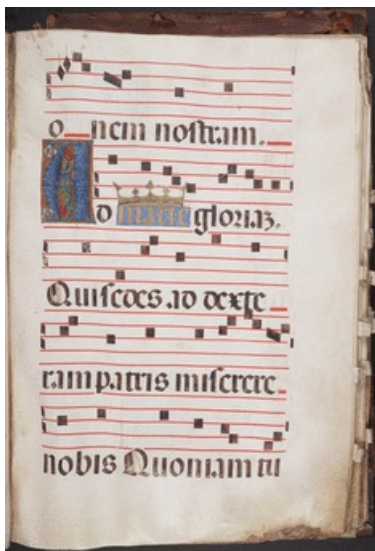 o_nem nostram._
Ad marie gloriaz.
Qui sedes ad dexte_
ram patris miserere_
nobis Quoniam tu